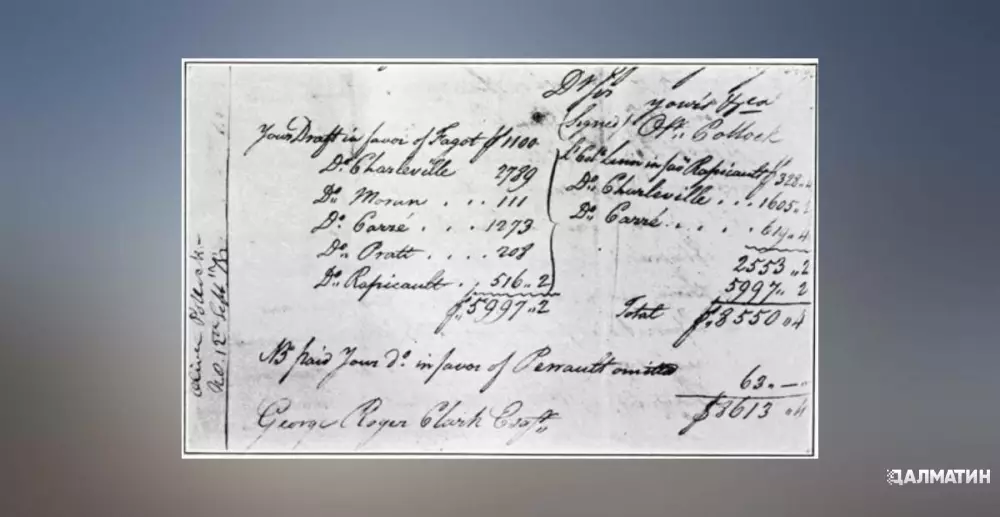 Dr Sir
yours &ca
Signed Olr Pollock
Your Draft in favor of Fagot $ 1100
Do Charleville 2789
Do Moran . . . 111
Do Carré . . . 1273
Do Pratt . . . . 208
Do Rapicault . 516 „ 2
$ 5997 „ 2
Lt Coln Linn in favr Rapicault $ 328 „ 4
Do Charleville . . . 1605 „ 2
Do Carré . . . . . 619 „ 4
2553 „ 2
5997 „ 2
Total $ 8550 „ 4
NB paid Your do in favor of Perrault omitted
63 „ —
$ 8613 „ 4
George Roger Clark Esqr
Oliver Pollock
N.O. 12th Sept
ДАЛМАТИН